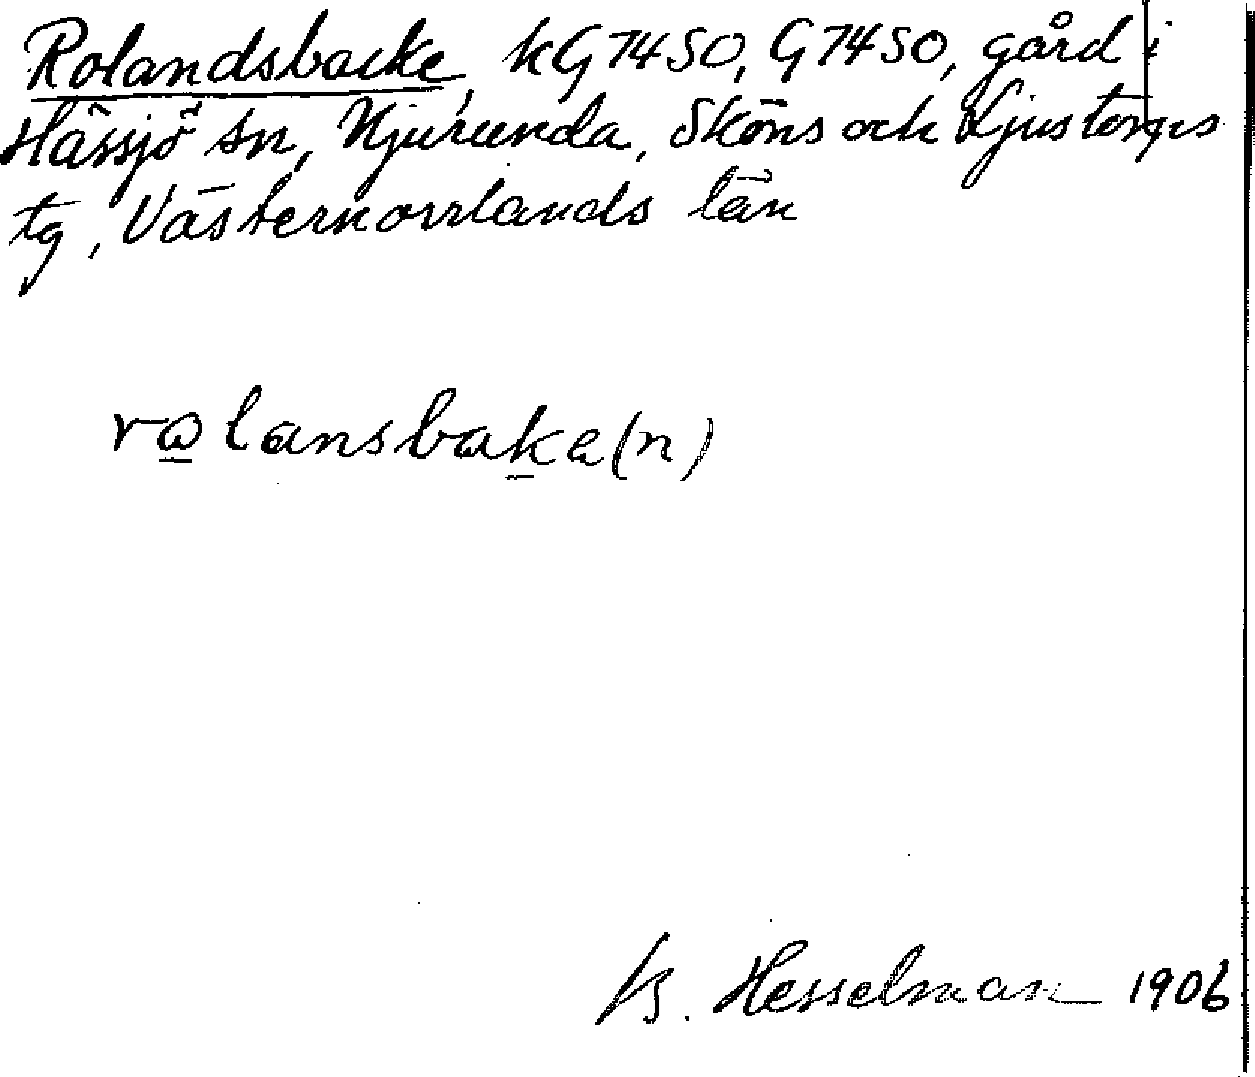 Rolandsbacke, KG7450, G7450, gård i
Hässjö sn, Njurunda, Sköns och Ljustorps
tg, Västernorrlands län
rωlansbake(n)
B. Hesselman 1906